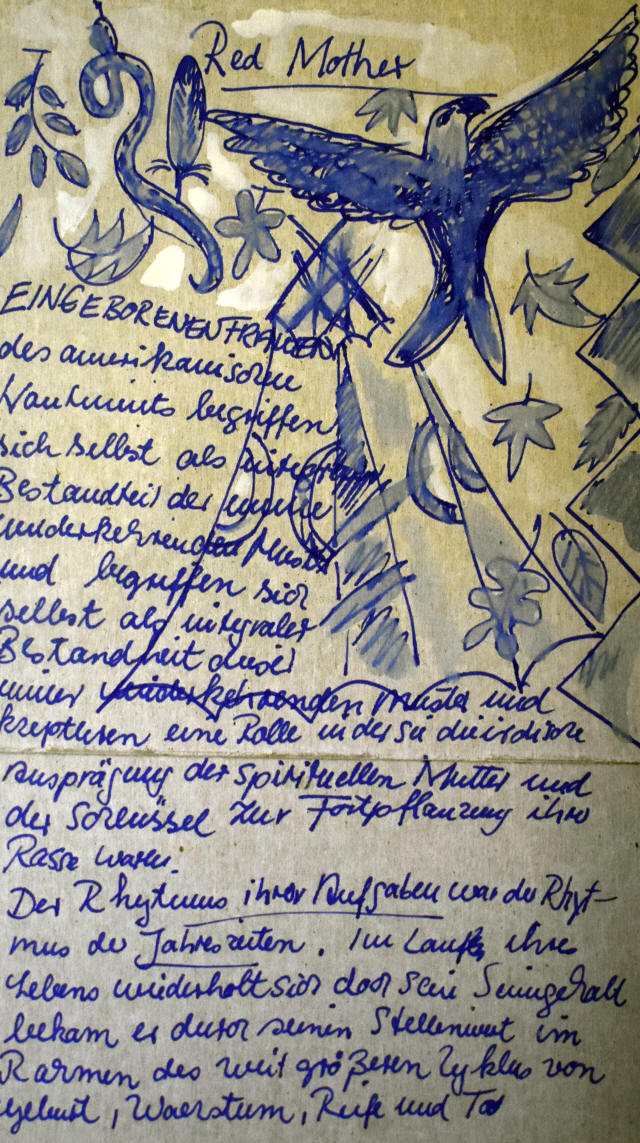 Red Mother
EINGEBORENENFRAUEN
des amerikanischen
begriffen
sich selbst als integralen
Bestandteil der immer
wiederkehrenden Muster
und begriffen sich
selbst als integraler
Bestandteil dieser
immer wiederkehrenden Muster und
akzeptieren eine Rolle in der sie die irdische
Ausprägung der spirituellen Mutter und
der Schlüssel zur Fortpflanzung ihrer
Rasse waren.
Der Rhytmus ihrer Aufgaben war der Rhyt-
mus der Jahreszeiten. Im Laufe ihres
Lebens wiederholt sich doch sein Sinngehalt
bekam er durch seinen Stellenwert im
Rahmen des weit größeren Zyklus von
Geburt, Wachstum, Reife und Tod